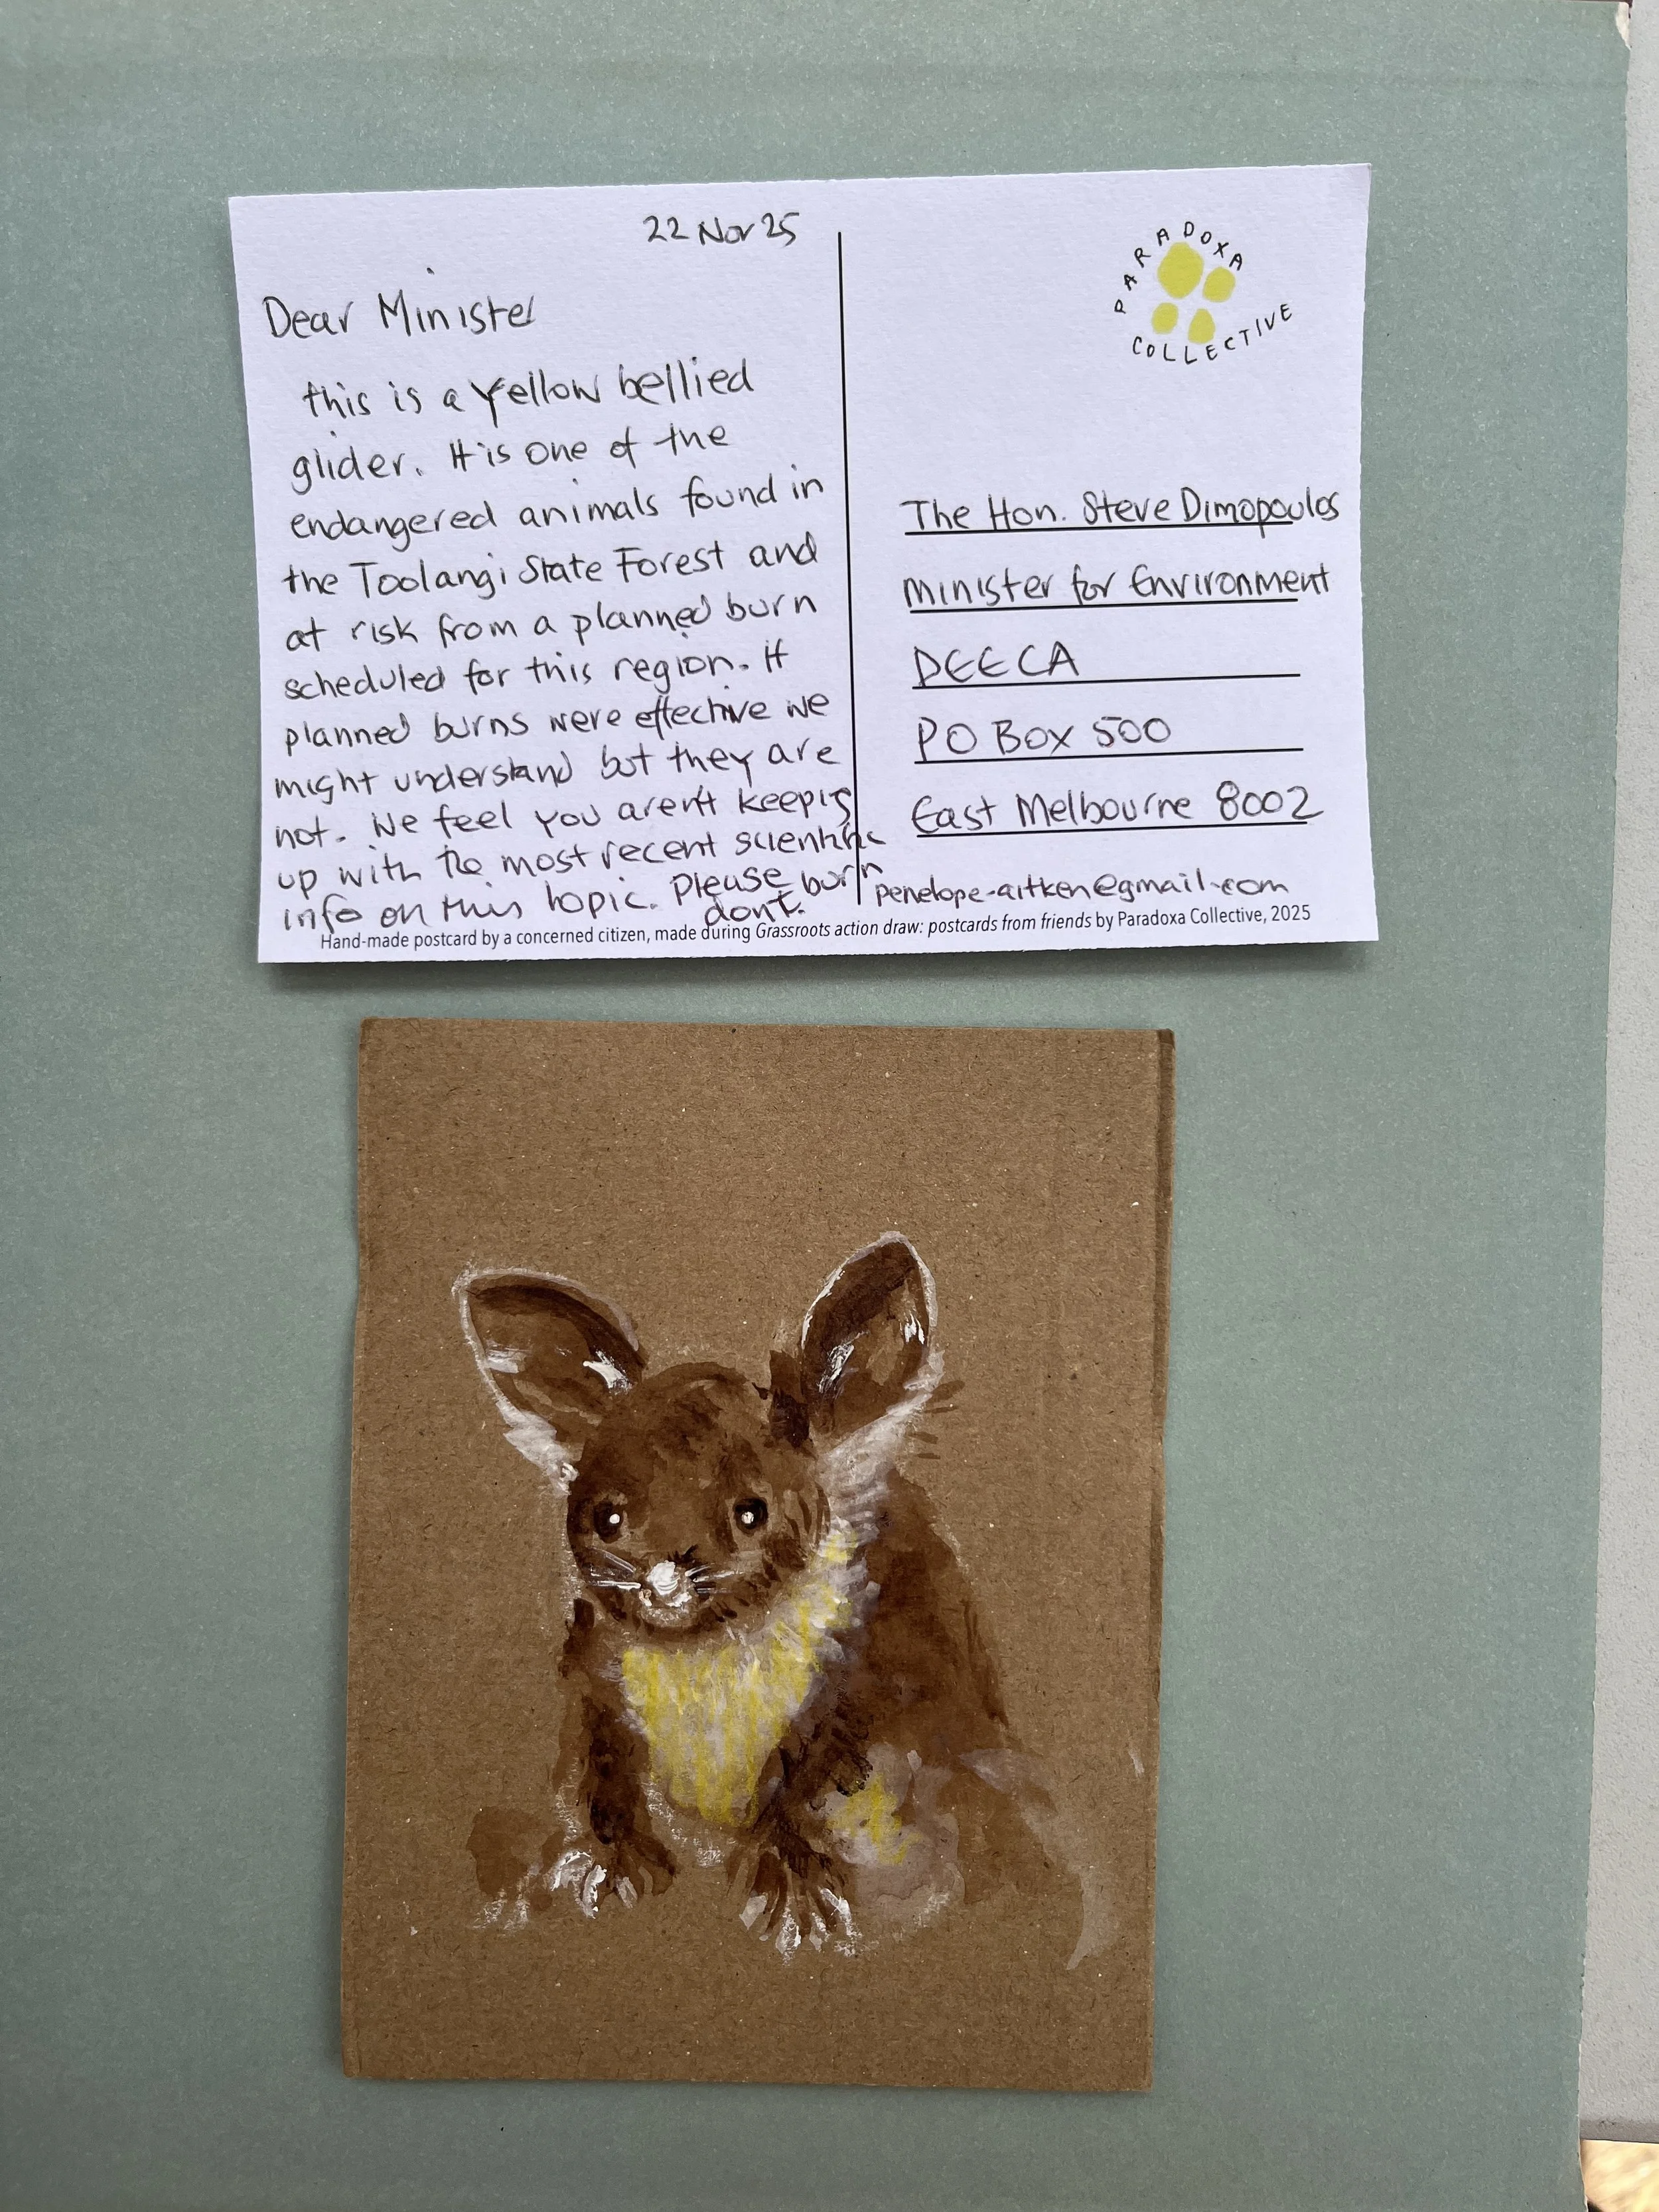 22 Nov 25
Dear Minister
this is a Yellow bellied
glider. It is one of the
endangered animals found in
the Toolangi State Forest and
at risk from a planned burn
scheduled for this region. If
planned burns were effective we
might understand but they are
not. We feel you aren't keeping
up with the most recent scientific
info on this topic. Please burn
dont.
PARADOXA
COLLECTIVE
The Hon. Steve Dimopoulos
Minister for Environment
DEECA
PO Box 500
East Melbourne 8002
penelope-aitken@gmail.com
Hand-made postcard by a concerned citizen, made during Grassroots action draw: postcards from friends by Paradoxa Collective, 2025